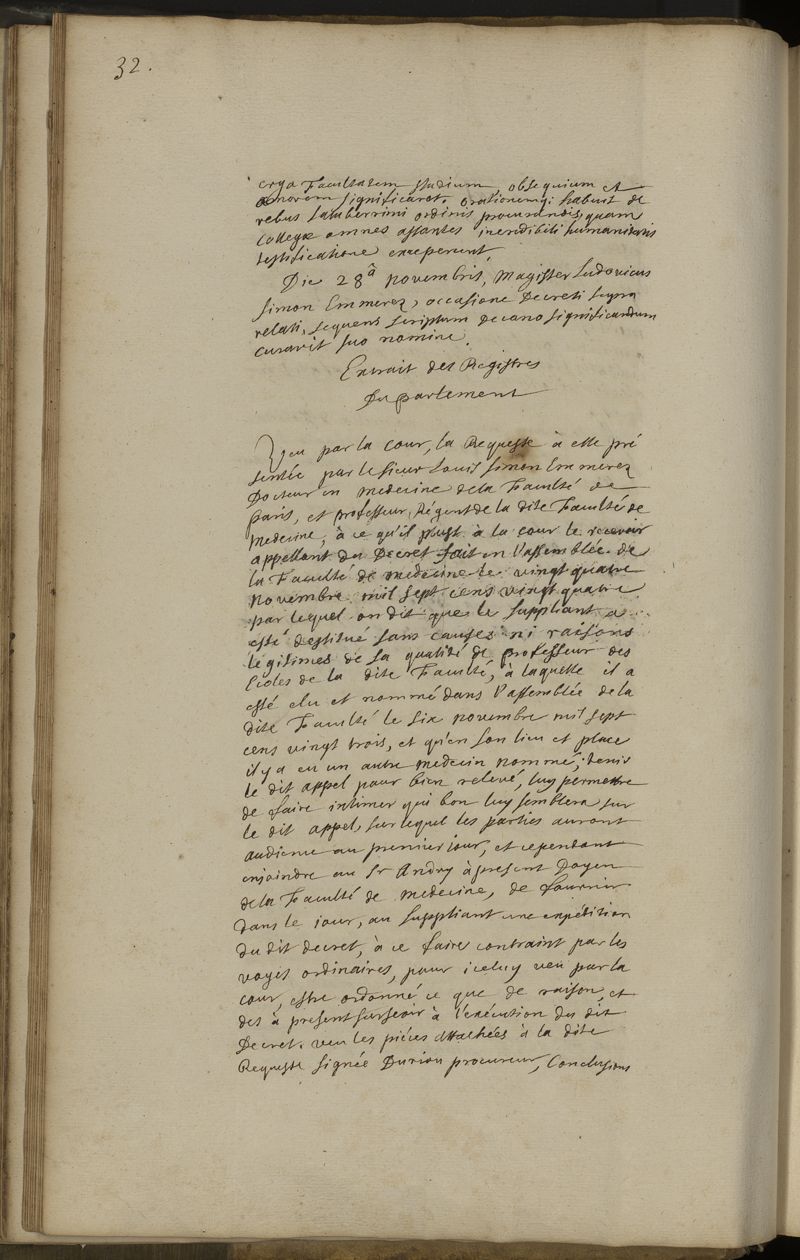 32.
erga Facultatem studium, obsequium et
honorem significaret. orationemq; habuit de
rebus saluberrimi ordinis promovendis, quam
Collegæ omnes astantes incredibili humanitatis
testificatione exceperunt.
Die 28ª novembris, Magister Ludovicus
Simon Emmerez, occasione Decreti supra
relati, sequens scriptum Decano significandum
curavit suo nomine.
Extrait des Registres
Du parlement
Veu par la Cour, la Requeste à elle pré
sentée par le sieur Louis Simon Emmerez
Docteur en medecine de la Faculté de
paris, et professeur Régent de la dite Faculté de
medecine, à ce qu'il plust à la cour le recevoir
appellant du Decret fait en l'assemblée de
la Faculté de medecine le vingt quatre
novembre mil sept cens vingt quatre
par lequel on dit que le suppliant a
esté destitué sans causes ni raisons
légitimes de la qualité de professeur des
Ecoles de la dite Faculté, à laquelle il a
esté elu et nommé dans l'assemblée de la
dite Faculté le six novembre mil sept
cens vingt trois, et qu'en son lieu et place
il y a eu un autre medecin nommé; tenir
le dit appel pour bien relevé, luy permettre
de faire intimer qui bon luy semblera sur
le dit appel, sur lequel les parties auront
audience au premier jour, et cependant
enjoindre au Sr Andry à present Doyen
de la Faculté de medecine, de fournir
dans le jour, au suppliant une expédition
du dit decret, à ce faire contraint par les
voyes ordinaires, pour iceluy veu par la
cour, estre ordonné ce que de raison, et
des à present surseoir à l'exécution du dit
Decret. veu les pièces attachées à la dite
Requeste signée Durieu procureur, Conclusions